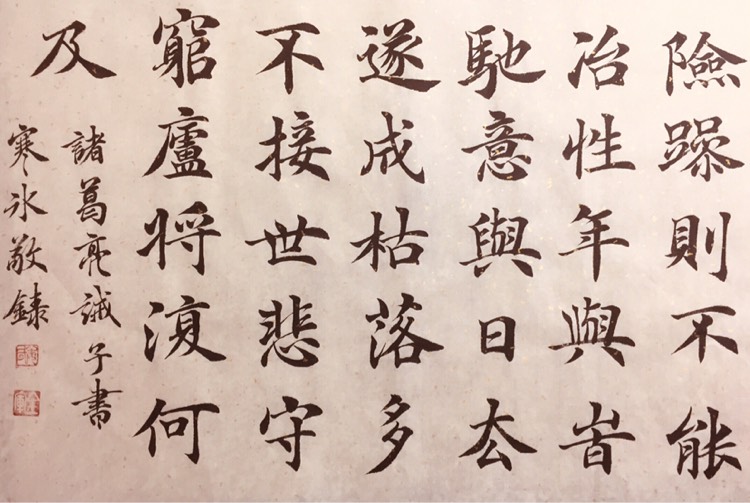 險躁則不能
冶性年與旹
馳意與日厺
遂成枯落多
不接世悲守
窮廬將復何
及
諸葛亮誡子書
寒冰敬錄